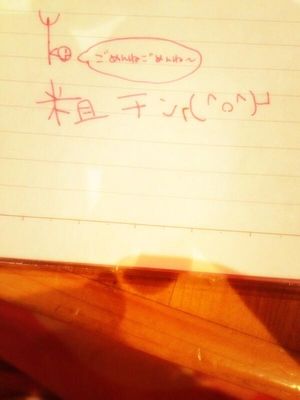 ごめんねごめんね〜
粗チンr(^o^)┘